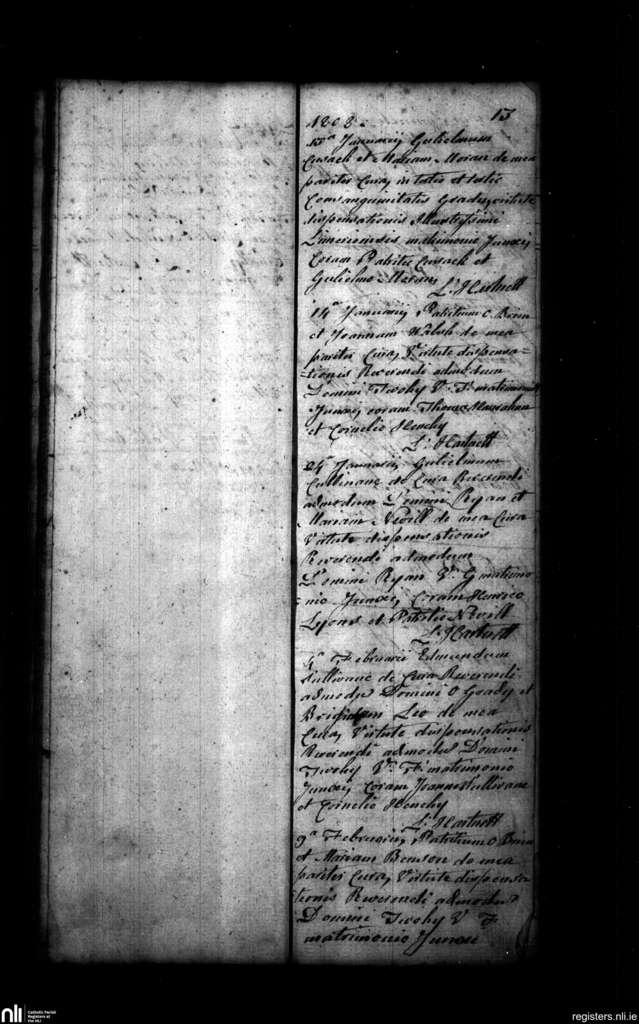 13
1808
13ª Januarij Gulielmum
Cusack et Mariam Moran de mea
pariter Cura, in tertio et tertio
Consanguinitatis Gradu, virtute
dispensationis Illustrissimi
Limericensis matrimonio Junxi
Coram Patritio Cusack et
Gulielmo Moran,
L. Hartnett
14ª Januarij, Patritium O Brien
et Joannam Walsh de mea
pariter Cura, Virtute dispensa=
=tionis Reverendi admodum
Domini Twohy V. F. matrimonio
Junxi, coram Thoma Hanrahan
et Cornelio Henchy
L. Hartnett
24ª Januarij, Gulielmum
Cullinane de Cura Reverendi
admodum Domini Ryan et
Mariam Nevill de mea Cura
Virtute dispensationis
Reverendi admodum
Domini Ryan V. G matrimo
=nio Junxi, Coram Henrico
Lyons et Patritio Nevill
L. Hartnett
4ª Februarii Edmundum
Sullivane de Cura Reverendi
admodu Domini O Grady et
Brigidam Leo de mea
Cura, Virtute dispensationis
Reverendi admodu Domini
Twohy V. F. matrimonio
Junxi, Coram Joanne Sullivane
et Cornelio Henchy
L. Hartnett
9ª Februarij, Patritium O Brien
et Mariam Benson de mea
pariter Cura, Virtute dispensa
tionis Reverendi admodu
Domini Twohy V F
matrimonio Junxi
nli
Catholic Parish
Registers at
the NLI
registers.nli.ie